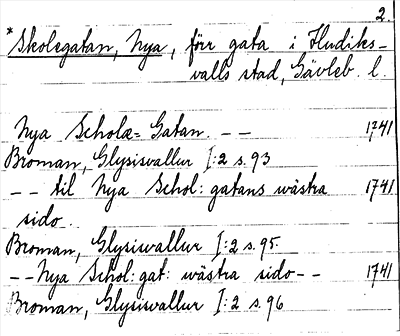 2.
*Skolegatan, Nya, förr gata i Hudiks-
valls stad, Gävleb. l.
Nya Scholæ=Gatan. -- 1741
Broman, Glysisvallur I:2 s. 93
-- til Nya Schol: gatans wästra 1741
sido..
Broman, Glysisvallur I:2 s. 95.
--Nya Schol: gat: wästra sido-- 1741
Broman, Glysisvallur I:2 s. 96